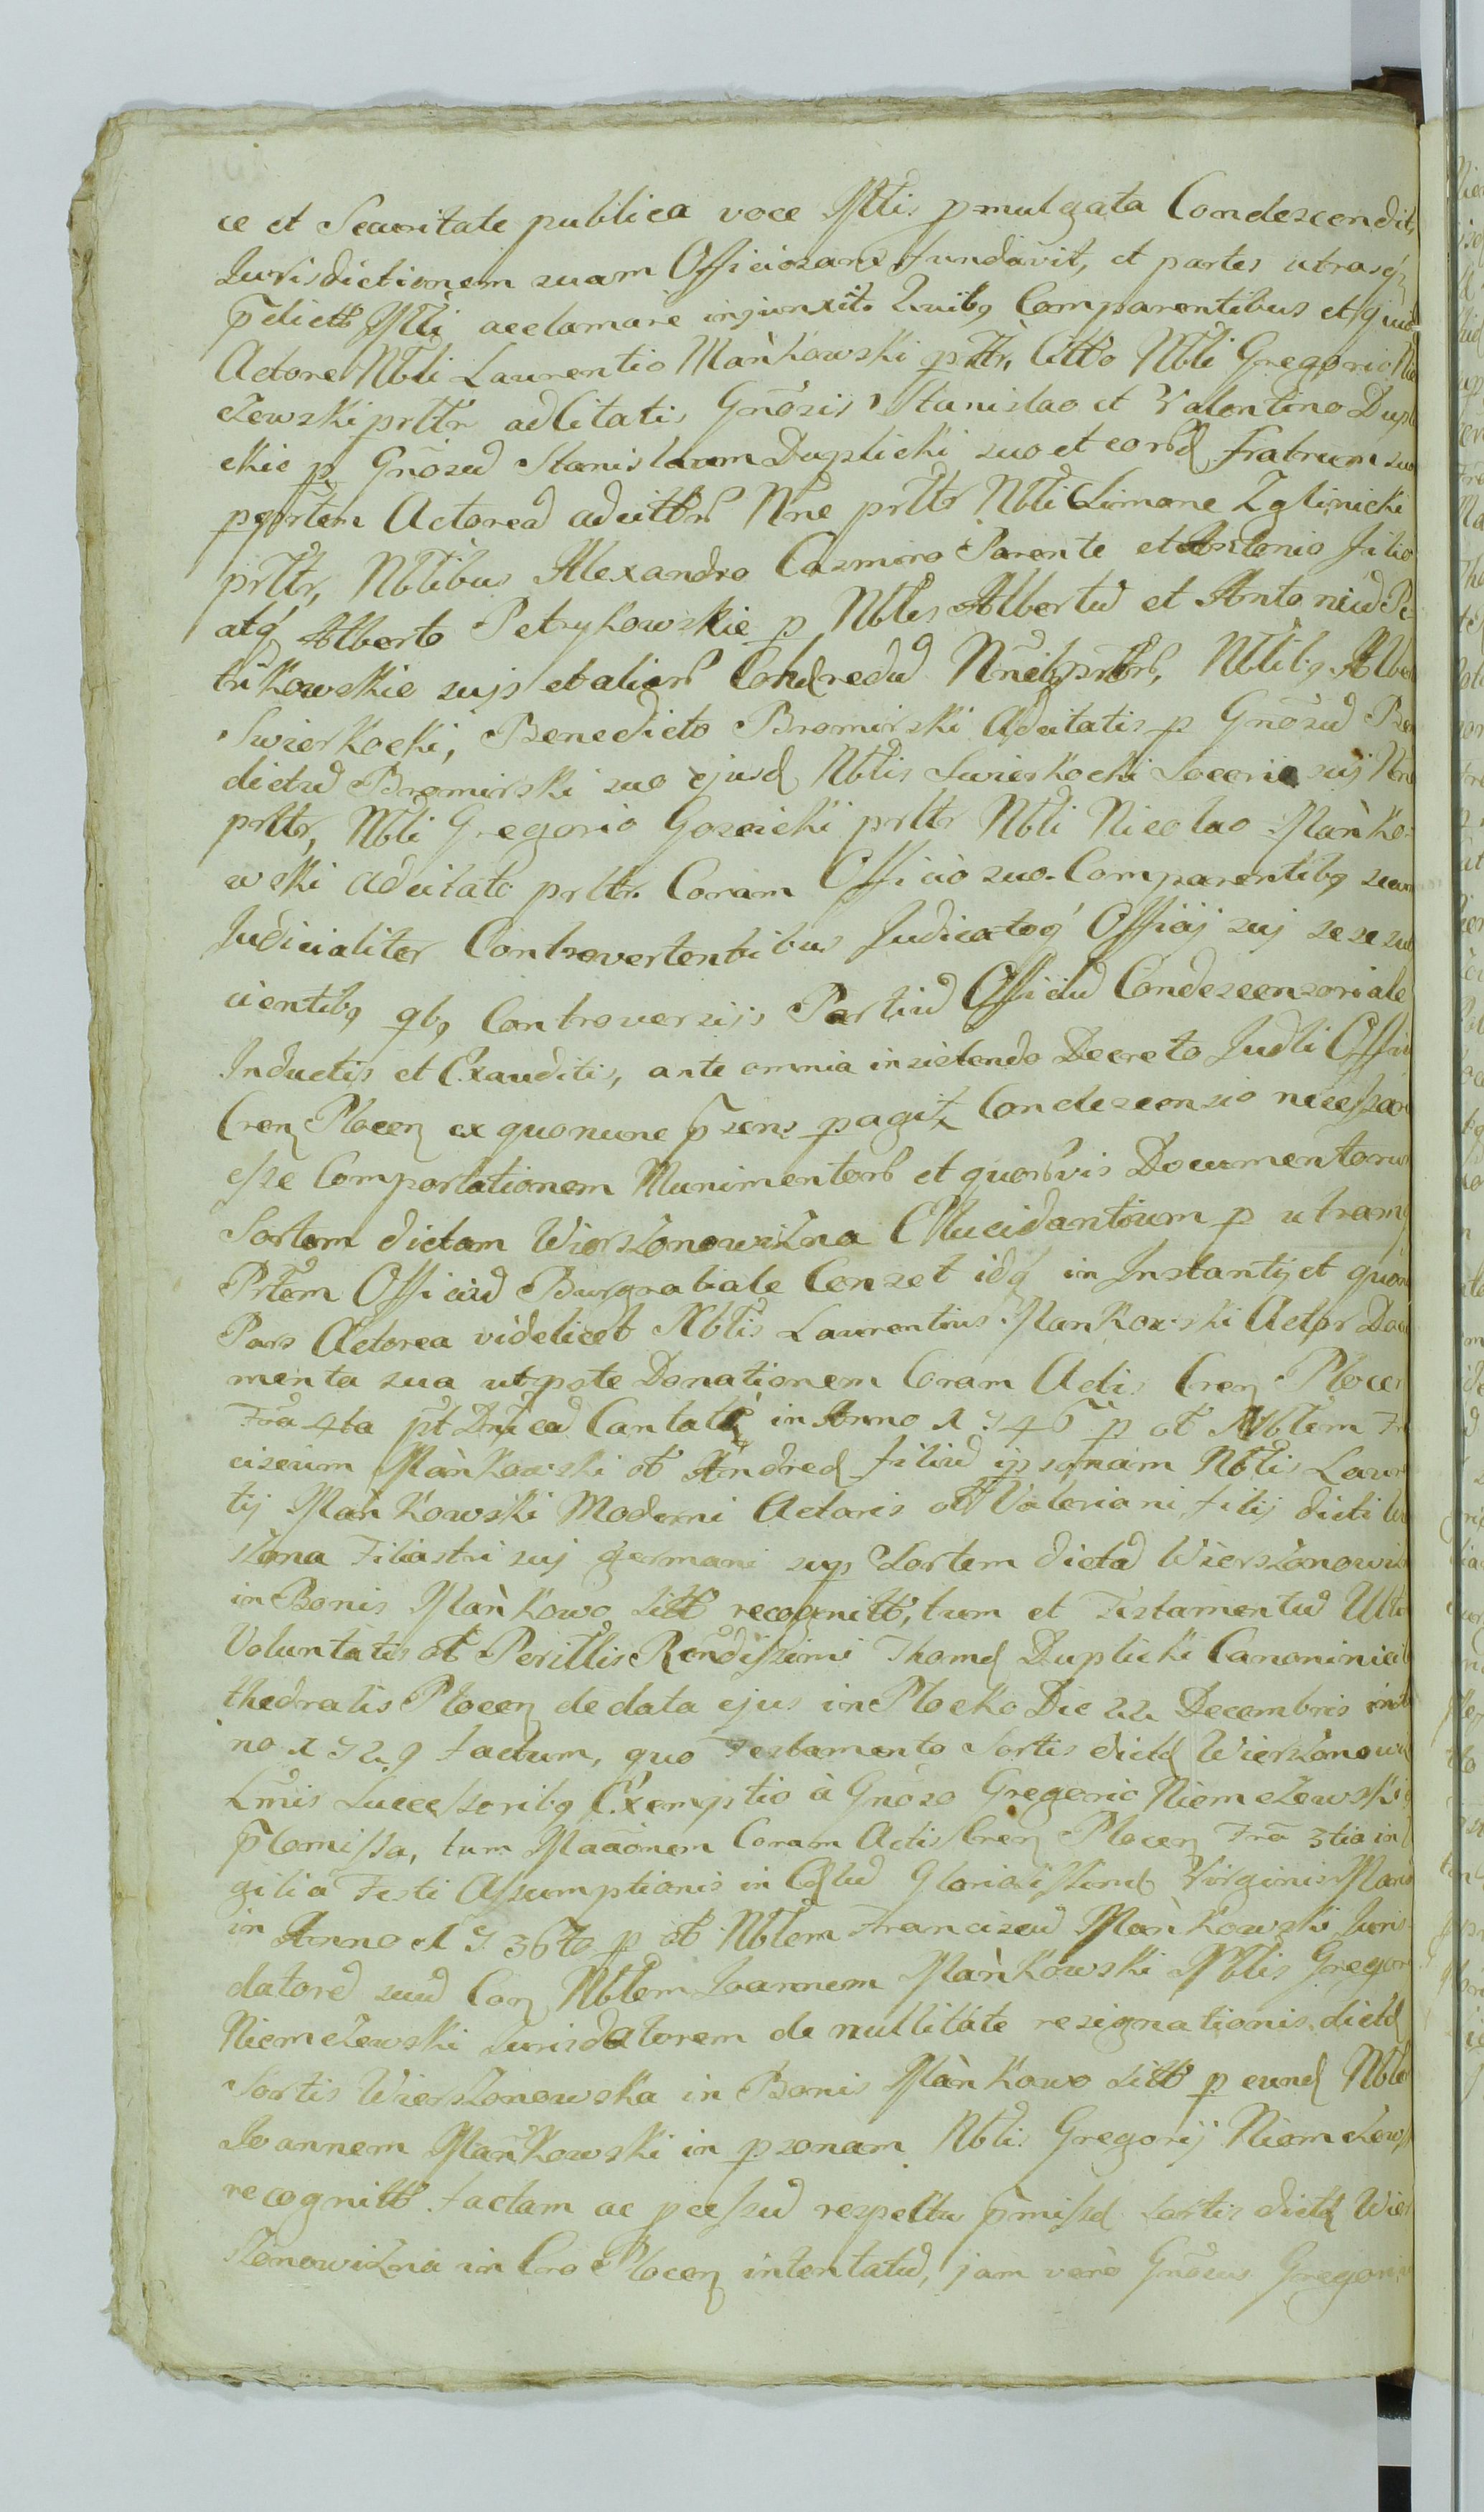 ce et Securitate publica voce Mtlis pmulgata Condescendit,
Jurisdictionem suam Officiosam fundavit, et partes utrasq
p̃dictt Mtli acclamare injunxit. Quibq Comparentibus et quid
Actore Nbli Laurentio Mańkowski prttr, Citto Nbli Gregorio Nie
czewski prttr adCitatis Gnõsis Stanislao et Valentino Dupl
ckie p Gnõsũ Stanislaum Duplicki suo et eorũd fratrum suo
p pr̃tem Actoreã adcittor Nñe prttr Nbli Simone Zglinicki
prttr, Nblibus Alexandro Casimiro Parente et Antonio filio
atq Alberto Petrykowskie p Nbles Albertũ et Antoniũ Pe
trikowskie sujs et alior Cohæredũ Nñeibq prttr, Nblibq Alber
Swierkocki, Benedicto Bromirski Adcitatis p Gnõsũ Bene
dictũ Bromirski suo ejusd Nblis Swierkocki Soceri suj Nõe
prttr, Nbli Gregorio Goscicki prttr Nbli Nicolao Mańko
wski adcitato prttr. Coram Officio suo Comparentibq secum
Judicialiter Controvertentibus Judicatoq Officij suj sese sub
cientibq qbq Controversijs Partiũ Officiũ Condescensoriale
Inductis et Exauditis, ante omnia insistendo Decreto Judli Offici
Cren Plocen ex quo nunc p̃sens pagit Condescensio necessari
esse Comportationem Munimentor et quorvis Documentorum
Sortem dictam Wierszonowizna Elucidantium p utramq
Prtem Officiũ Burgrabiale Censet idq in Instanti et quon
Pars Actorea videlicet Nblis Laurentius Mankowski Actor Docu
menta sua utpote Donationem Coram Actis Cren Plocen
Fra 4ta pt Dnicã Cantate in Anno 1746 p ol Nblem Fran
ciscum Mańkowski ol Andreæ filiũ in psonam Nblis Lauren
tij Mańkowski Moderni Actoris ol Valeriani filij dicti Wier
szona Filiastri suj germani sup Sortem dictã Wierszonowizn
in Bonis Mańkowo sitt recognitt, tum et Testamentũ Ulti
Voluntatis ol Perillis Rendissimi Thomæ Duplicki Canonici Ca
thedralis Plocen de data ejus in Plocko Die 22 Decembris in An
no 1729 factum, quo Testamento Sortis dictæ Wierszonowi
Lmis Successoribq Exemptio à Gnõso Gregorio Niemczewski
p̃lomissa, tum Maãõnem Coram Actis Cren Plocen Fra 3tia in
gilia Festi Assumptionis in Cælũ Gloriosissimæ Virginis Maria
in Anno 1736to p ol Nblem Franciscũ Mańkowski Juris
datorẽ suũ Con Nblem Joannem Mańkowski Nblis Gregor
Niemczewski Jurisdatorem de nullitate resignationis dictæ
Sortis Wierszonowska in Bonis Mańkowo sitt p eund Nble
Joannem Mańkowski in psonam Nblis Gregorij Niemczews
recognitt factam ac pcessũ respectu p̃missæ sortis dictæ Wier
szonowizna in Cro Plocen intentatũ, jam verò Gnõsus Gregori